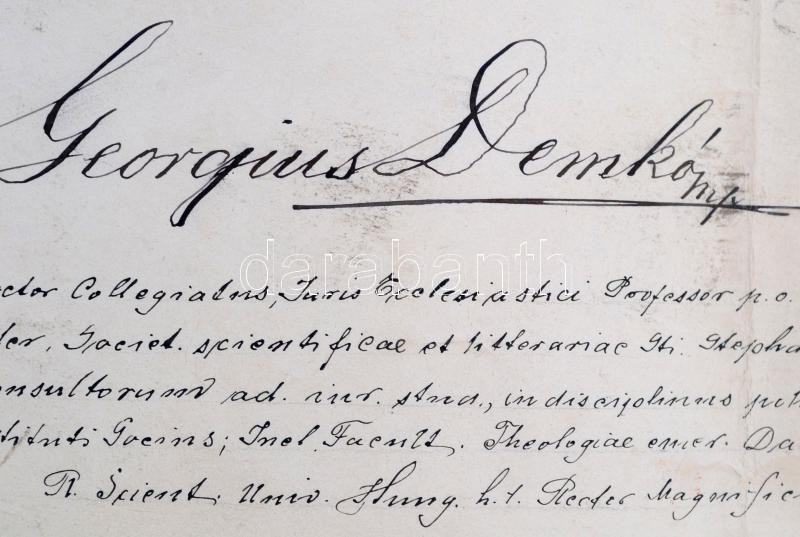 Georgius Demkó mp.
darabanth
ctor Collegiatus, Juris Ecclesiastici Professor p. o.
Societ. scientificae et litterariae Sti. Stepha
onsultorum ad. iur. stud., in disciplinis pol
stituti Socius; Incl. Facult. Theologiae emer. Da
R. Scient. Univ. Hung. h. t. Rector Magnific